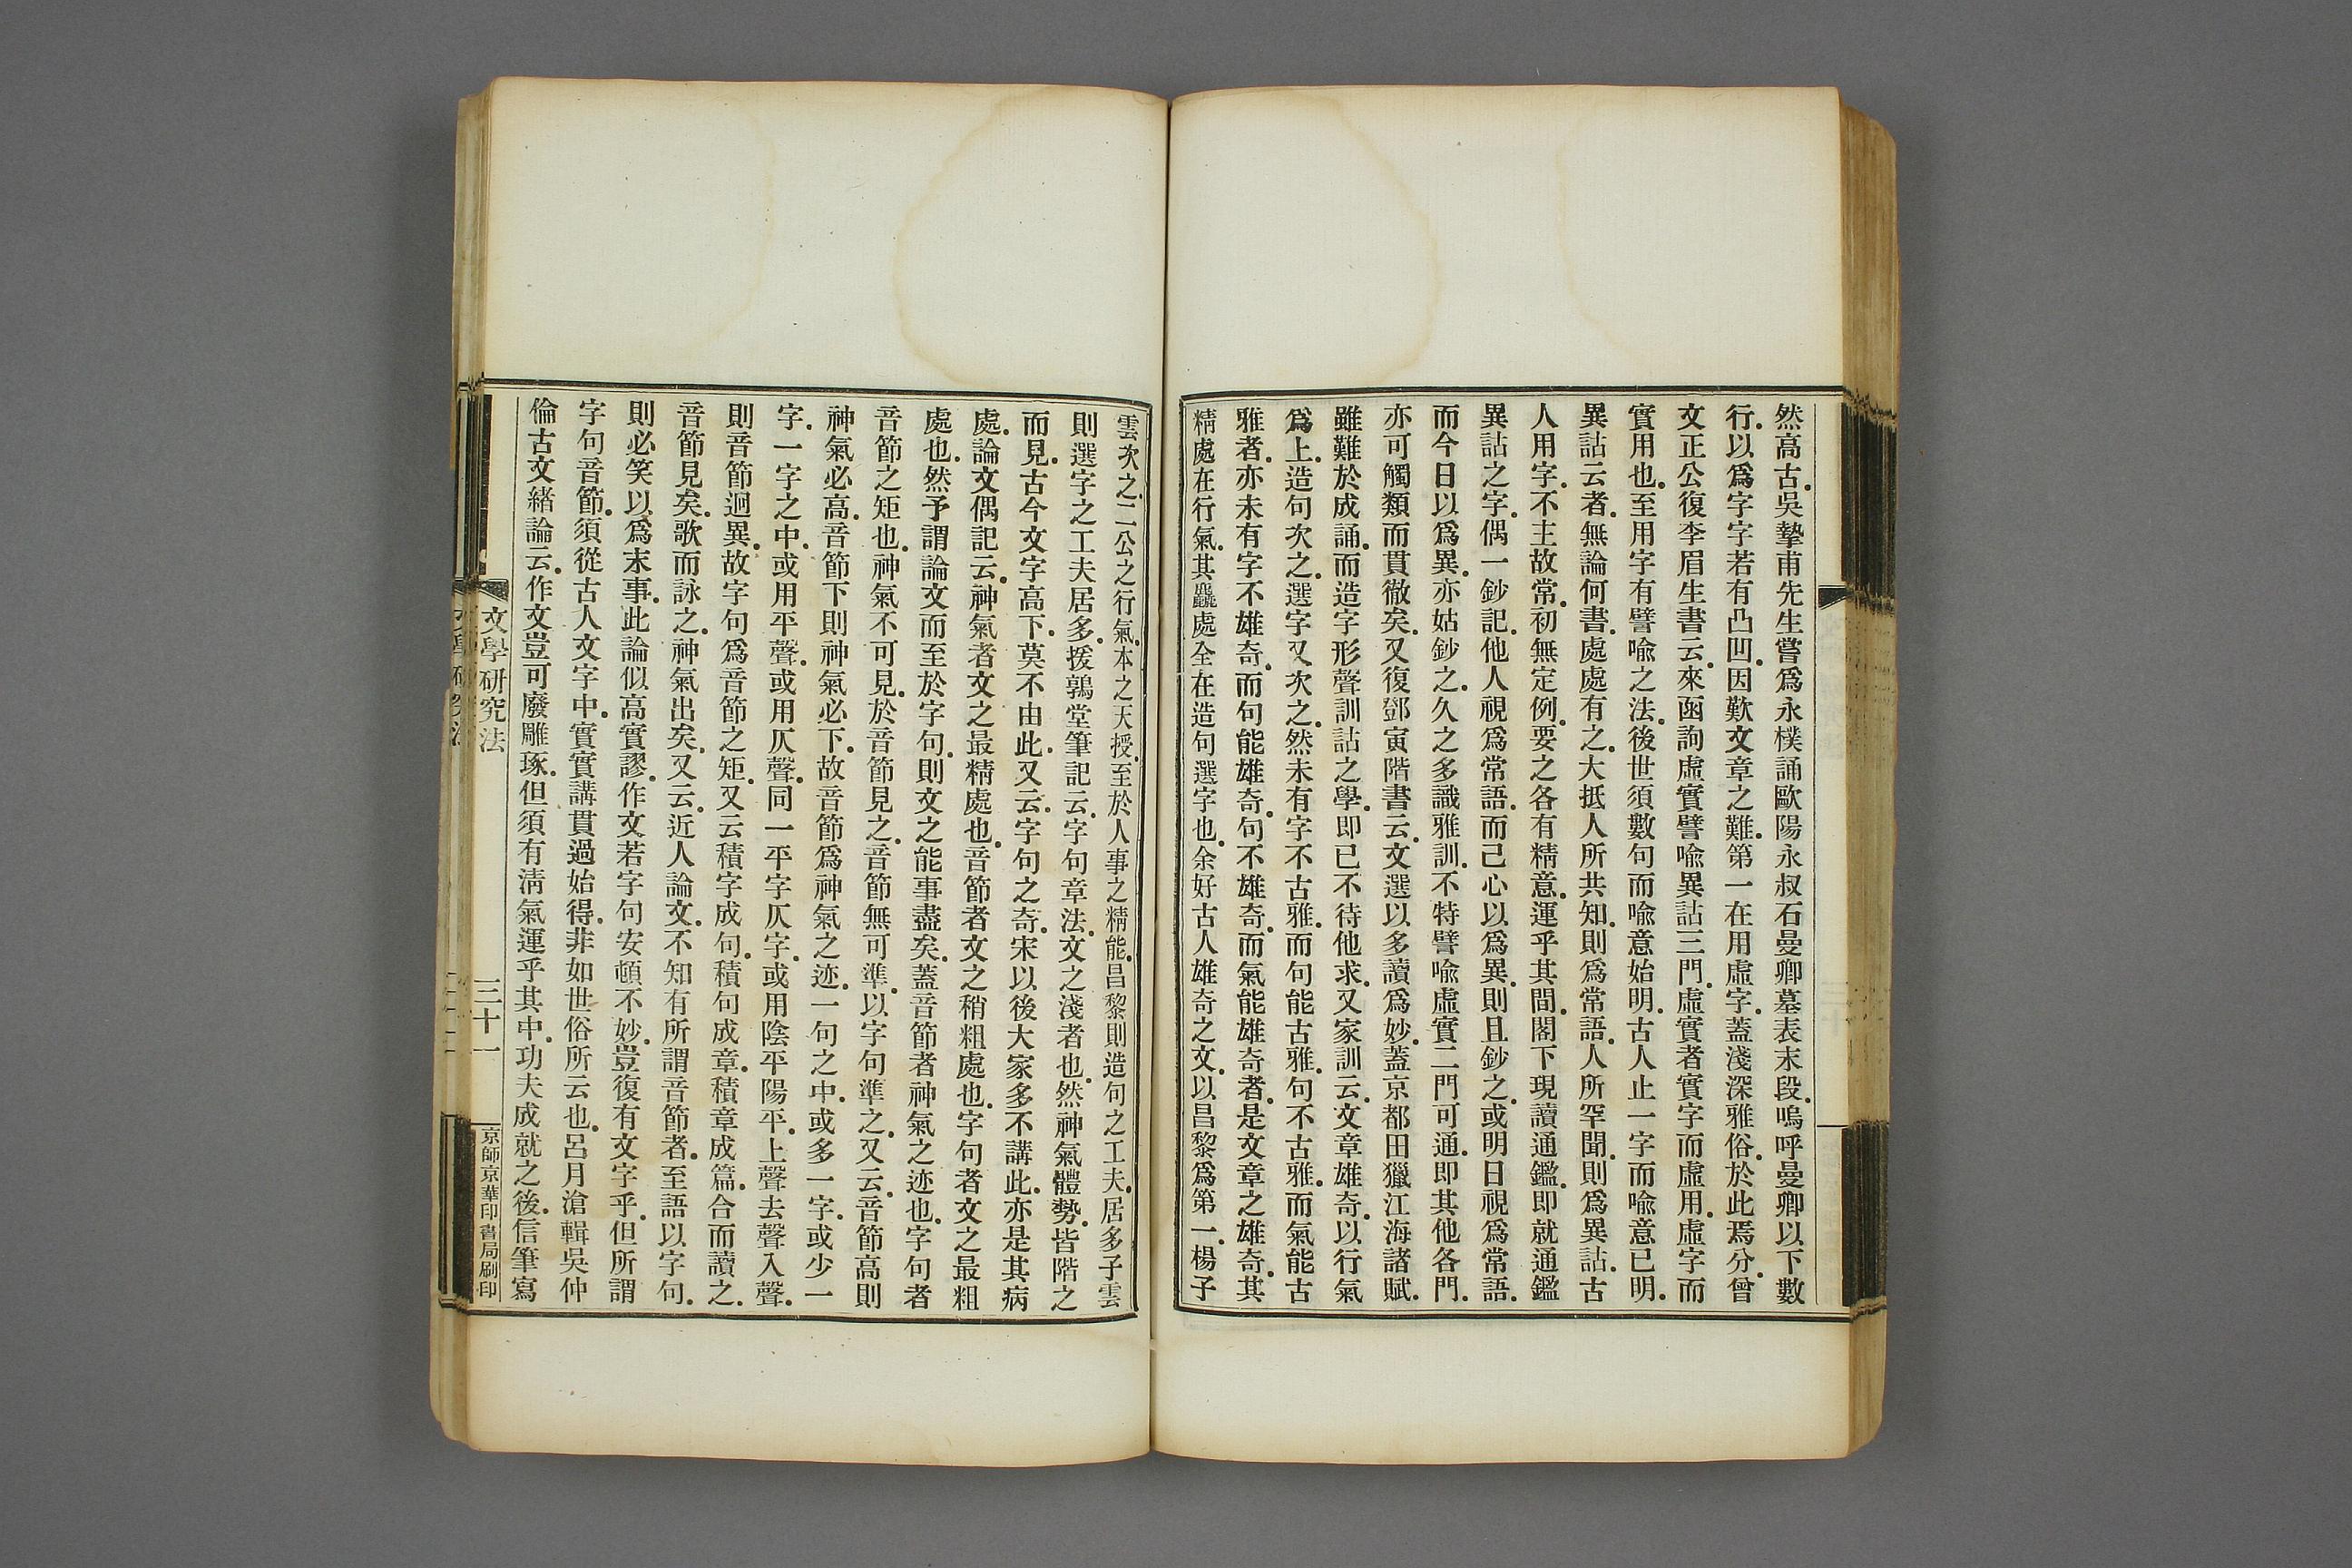 然高古.吳摯甫先生嘗爲永樸誦歐陽永叔石曼卿墓表末段.嗚呼曼卿以下數
行.以爲字字若有凸凹.因歎文章之難.第一在用虛字.蓋淺深雅俗.於此焉分.曾
文正公復李眉生書云.來函詢虛實譬喩異詁三門.虛實者實字而虛用.虛字而
實用也.至用字有譬喩之法.後世須數句而喩意始明.古人止一字而喩意已明.
異詁云者.無論何書.處處有之.大抵人所共知.則爲常語.人所罕聞.則爲異詁.古
人用字.不主故常.初無定例.要之各有精意.運乎其間.閣下現讀通鑑.即就通鑑
異詁之字.偶一鈔記.他人視爲常語.而己心以爲異.則且鈔之.或明日視爲常語.
而今日以爲異.亦姑鈔之.久之多識雅訓.不特譬喩虛實二門可通.即其他各門.
亦可觸類而貫徹矣.又復鄧寅階書云.文選以多讀爲妙.蓋京都田獵江海諸賦.
雖難於成誦.而造字形聲訓詁之學.即已不待他求.又家訓云.文章雄奇.以行氣
爲上.造句次之.選字又次之.然未有字不古雅.而句能古雅.句不古雅.而氣能古
雅者.亦未有字不雄奇.而句能雄奇.句不雄奇.而氣能雄奇者.是文章之雄奇.其
精處在行氣.其麤處全在造句選字也.余好古人雄奇之文.以昌黎爲第一.楊子
雲次之.二公之行氣.本之天授.至於人事之精能.昌黎則造句之工夫.居多子雲
則選字之工夫居多.援鶉堂筆記云.字句章法.文之淺者也.然神氣體勢.皆階之
而見.古今文字高下.莫不由此.又云.字句之奇.宋以後大家多不講此.亦是其病
處.論文偶記云.神氣者文之最精處也.音節者文之稍粗處也.字句者文之最粗
處也.然予謂論文而至於字句.則文之能事盡矣.蓋音節者神氣之迹也.字句者
音節之矩也.神氣不可見.於音節見之.音節無可準.以字句準之.又云.音節高則
神氣必高.音節下則神氣必下.故音節爲神氣之迹.一句之中.或多一字.或少一
字.一字之中.或用平聲.或用仄聲.同一平字仄字.或用陰平陽平.上聲去聲入聲.
則音節迴異.故字句爲音節之矩.又云積字成句.積句成章.積章成篇.合而讀之.
音節見矣.歌而詠之.神氣出矣.又云.近人論文.不知有所謂音節者.至語以字句.
則必笑以爲末事.此論似高實謬.作文若字句安頓不妙.豈復有文字乎.但所謂
字句音節.須從古人文字中.實實講貫過始得.非如世俗所云也.呂月滄輯吳仲
倫古文緒論云.作文豈可廢雕琢.但須有淸氣運乎其中.功夫成就之後.信筆寫
文學研究法
三十一
京師京華印書局刷印